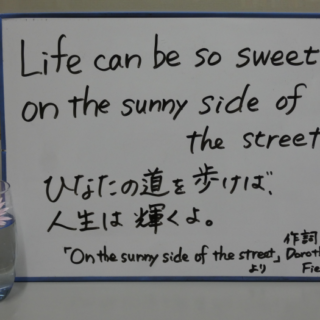 Life can be so sweet
on the sunny side of
the street
ひなたの道を歩けば、
人生は輝くよ。
作詞
「On the sunny side of the street」
より